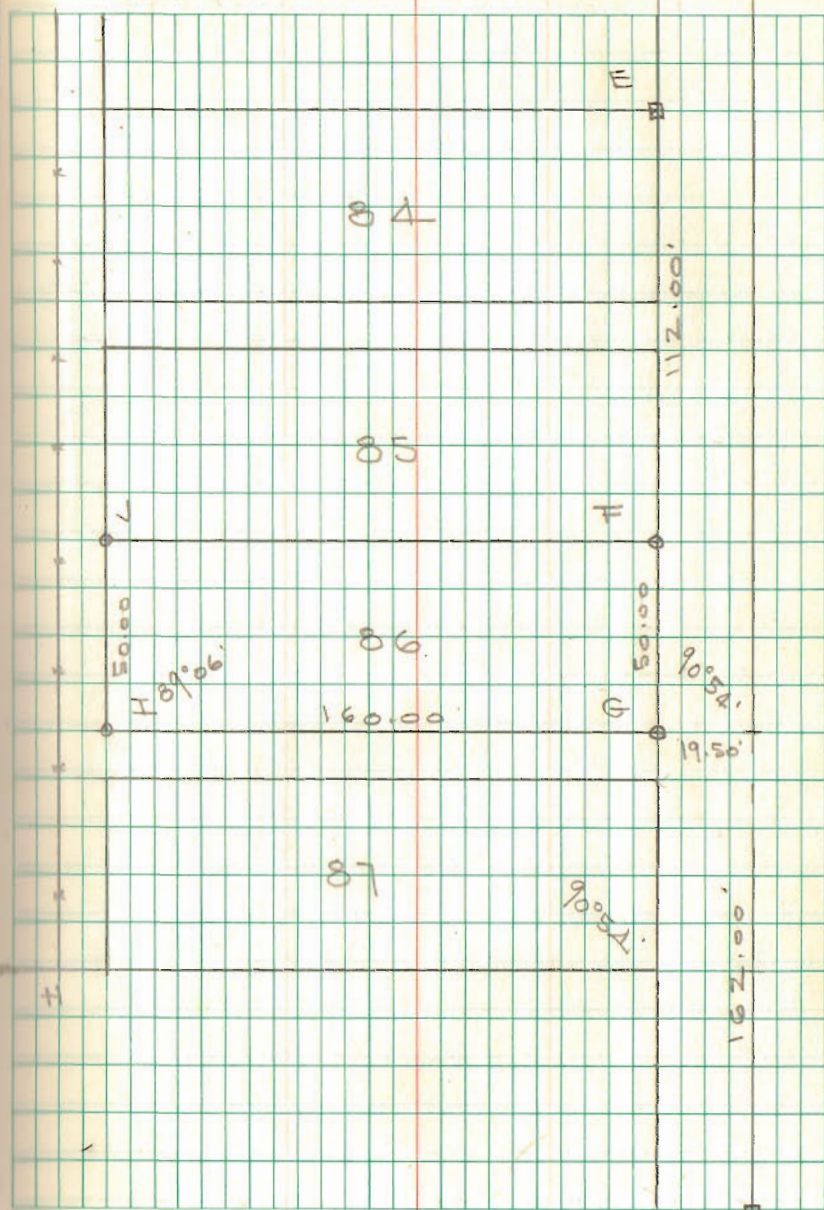 E
84
112.00'
85
L
F
50.00
50.00
86.
90°54'
I 89°06'
160.00
G
19.50'
87
90°54'
162.00'